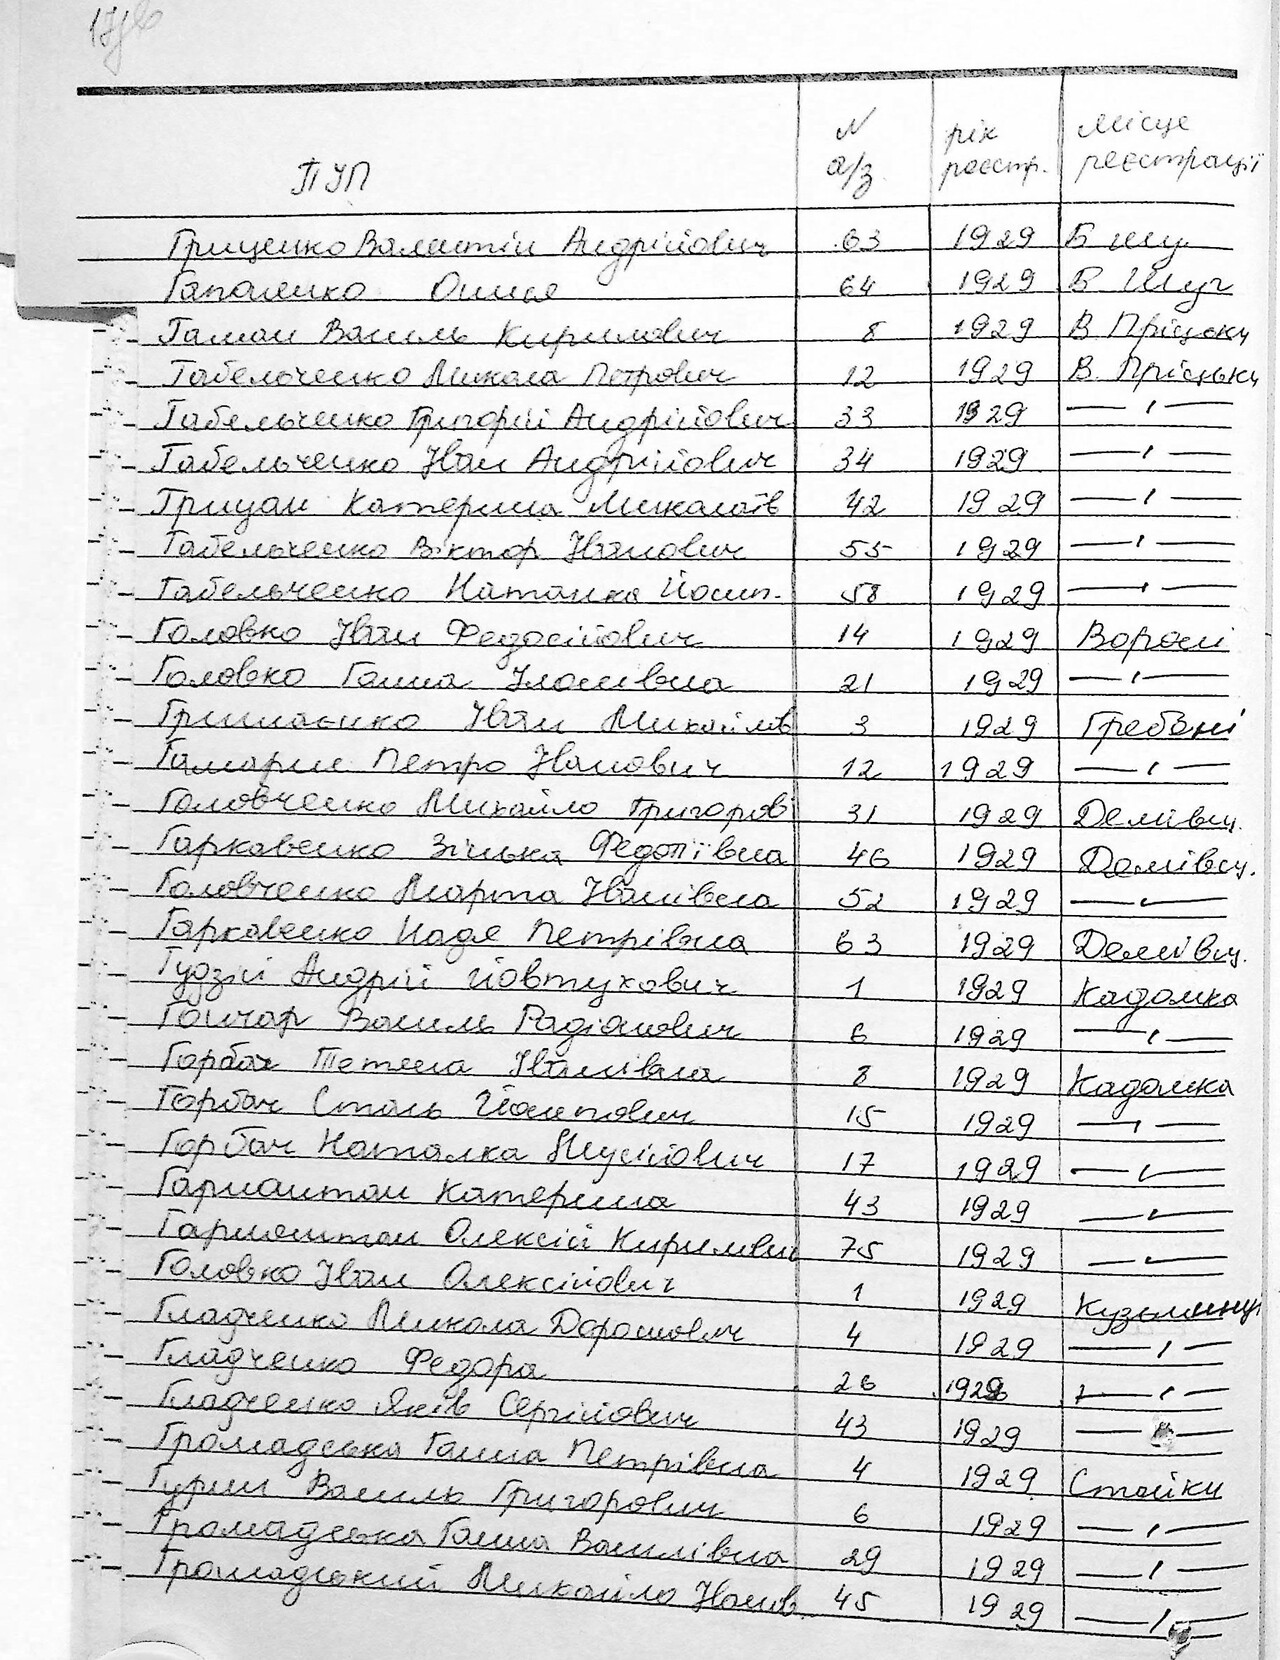 ПІП N а/з рік реєстр. місце реєстрації
Гриценко Валентін Андрійович 63 1929 Б Шу
Гапоненко Олися 64 1929 Б Шуч
Гаман Василь Кирилович 8 1929 В Пріцьки
Габельченко Микола Петрович 12 1929 В. Пріцьки
Габельченко Григорій Андрійович 33 1929 — " —
Габельченко Іван Андрійович 34 1929 — " —
Грицан Катерина Миколаїв 42 1929 — " —
Габельченко Віктор Іванович 55 1929 — " —
Габельченко Наталка Йосип. 58 1929 — " —
Головко Іван Федосійович 14 1929 Ворони
Головко Ганна Ілонівна 21 1929 — " —
Іван Михайлов 3 1929 Гребені
Гамарик Петро Іванович 12 1929 — " —
Головченко Михайло Григорові 31 1929 Демівщ.
Гаркавенко Зінька Федотівна 46 1929 Демівщ.
Головченко Марта Іванівна 52 1929 — " —
Гаркавенко Надя Петрівна 63 1929 Демівщ.
Гудзій Андрій Йовтухович 1 1929 Кадомка
Гончар Василь Радіонович 6 1929 — " —
Горбач Тетяна Іванівна 8 1929 Кадомка
Горбач Йосипович 15 1929 — " —
Горбач Наталка Мусійович 17 1929 — " —
Гармаштан Катерина 43 1929 — " —
Гармаштан Олексій Кирилвич 75 1929 — " —
Головко Іван Олексійович 1 1929 Кузьминці
Гладченко Микола Дорошович 4 1929 — " —
Гладченко Федора 26 1929 — " —
Гладченко Яків Сергійович 43 1929 — " —
Громадська Ганна Петрівна 4 1929 Стайки
Гурин Василь Григорович 6 1929 — " —
Громадська Ганна Василівна 29 1929 — " —
Громадський Михайло Іванов 45 1929 — " —